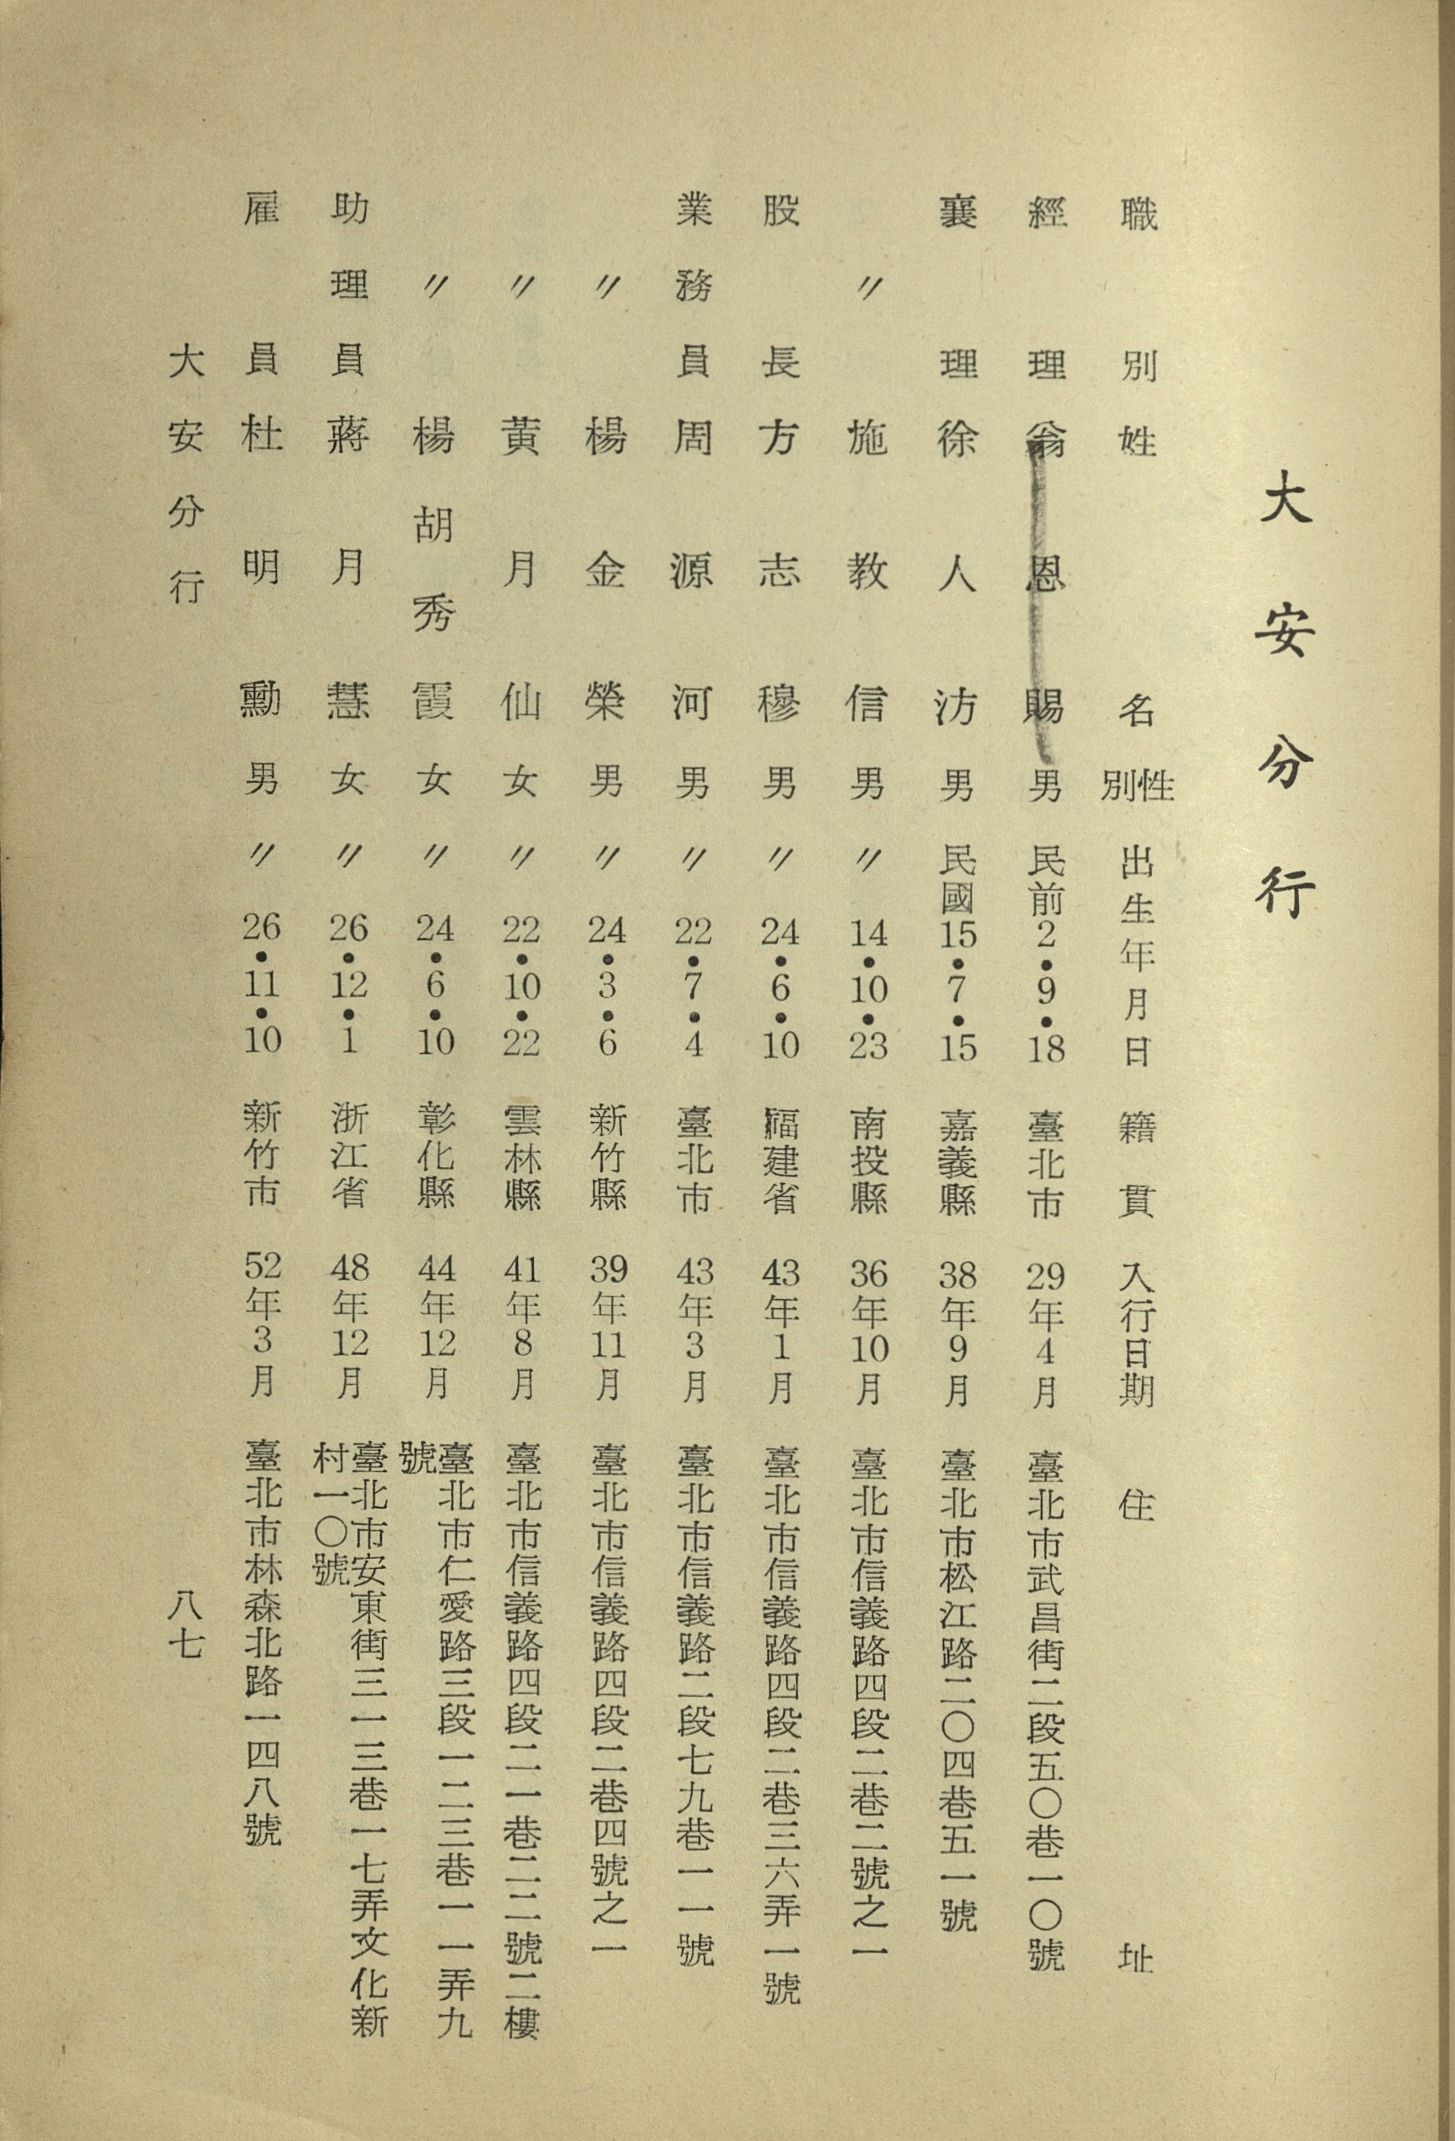 大安分行
職別 姓名 性別 出生年月日 籍貫 入行日期 住址
經理 翁恩賜 男 民前2•9•18 臺北市 29年4月 臺北市武昌街二段五〇巷一〇號
襄理 徐人汸 男 民國15•7•15 嘉義縣 38年9月 臺北市松江路二〇四巷五一號
〃 施教信 男 〃14•10•23 南投縣 36年10月 臺北市信義路四段二巷二號之一
股長 方志穆 男 〃24•6•10 福建省 43年1月 臺北市信義路四段二巷三六弄一號
業務員 周源河 男 〃22•7•4 臺北市 43年3月 臺北市信義路二段七九巷一一號
〃 楊金榮 男 〃24•3•6 新竹縣 39年11月 臺北市信義路四段二巷四號之一
〃 黃月仙 女 〃22•10•22 雲林縣 41年8月 臺北市信義路四段二一巷二二號二樓
〃 楊胡秀霞 女 〃24•6•10 彰化縣 44年12月 臺北市仁愛路三段一二三巷一一弄九
號
助理員 蔣月慧 女 〃26•12•1 浙江省 48年12月 臺北市安東街三一三巷一七弄文化新
村一〇號
雇員 杜明勳 男 〃26•11•10 新竹市 52年3月 臺北市林森北路一四八號
大安分行 八七